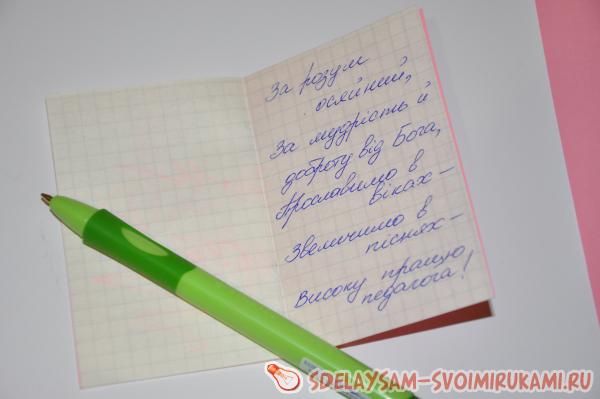 За розум
осяйний,
За мудрість й
доброту від Бога,
Прославимо в
віках –
Звеличимо в
піснях –
Високу працю
педагога!
SDELAYSAM-SVOIMIRUKAMI.RU